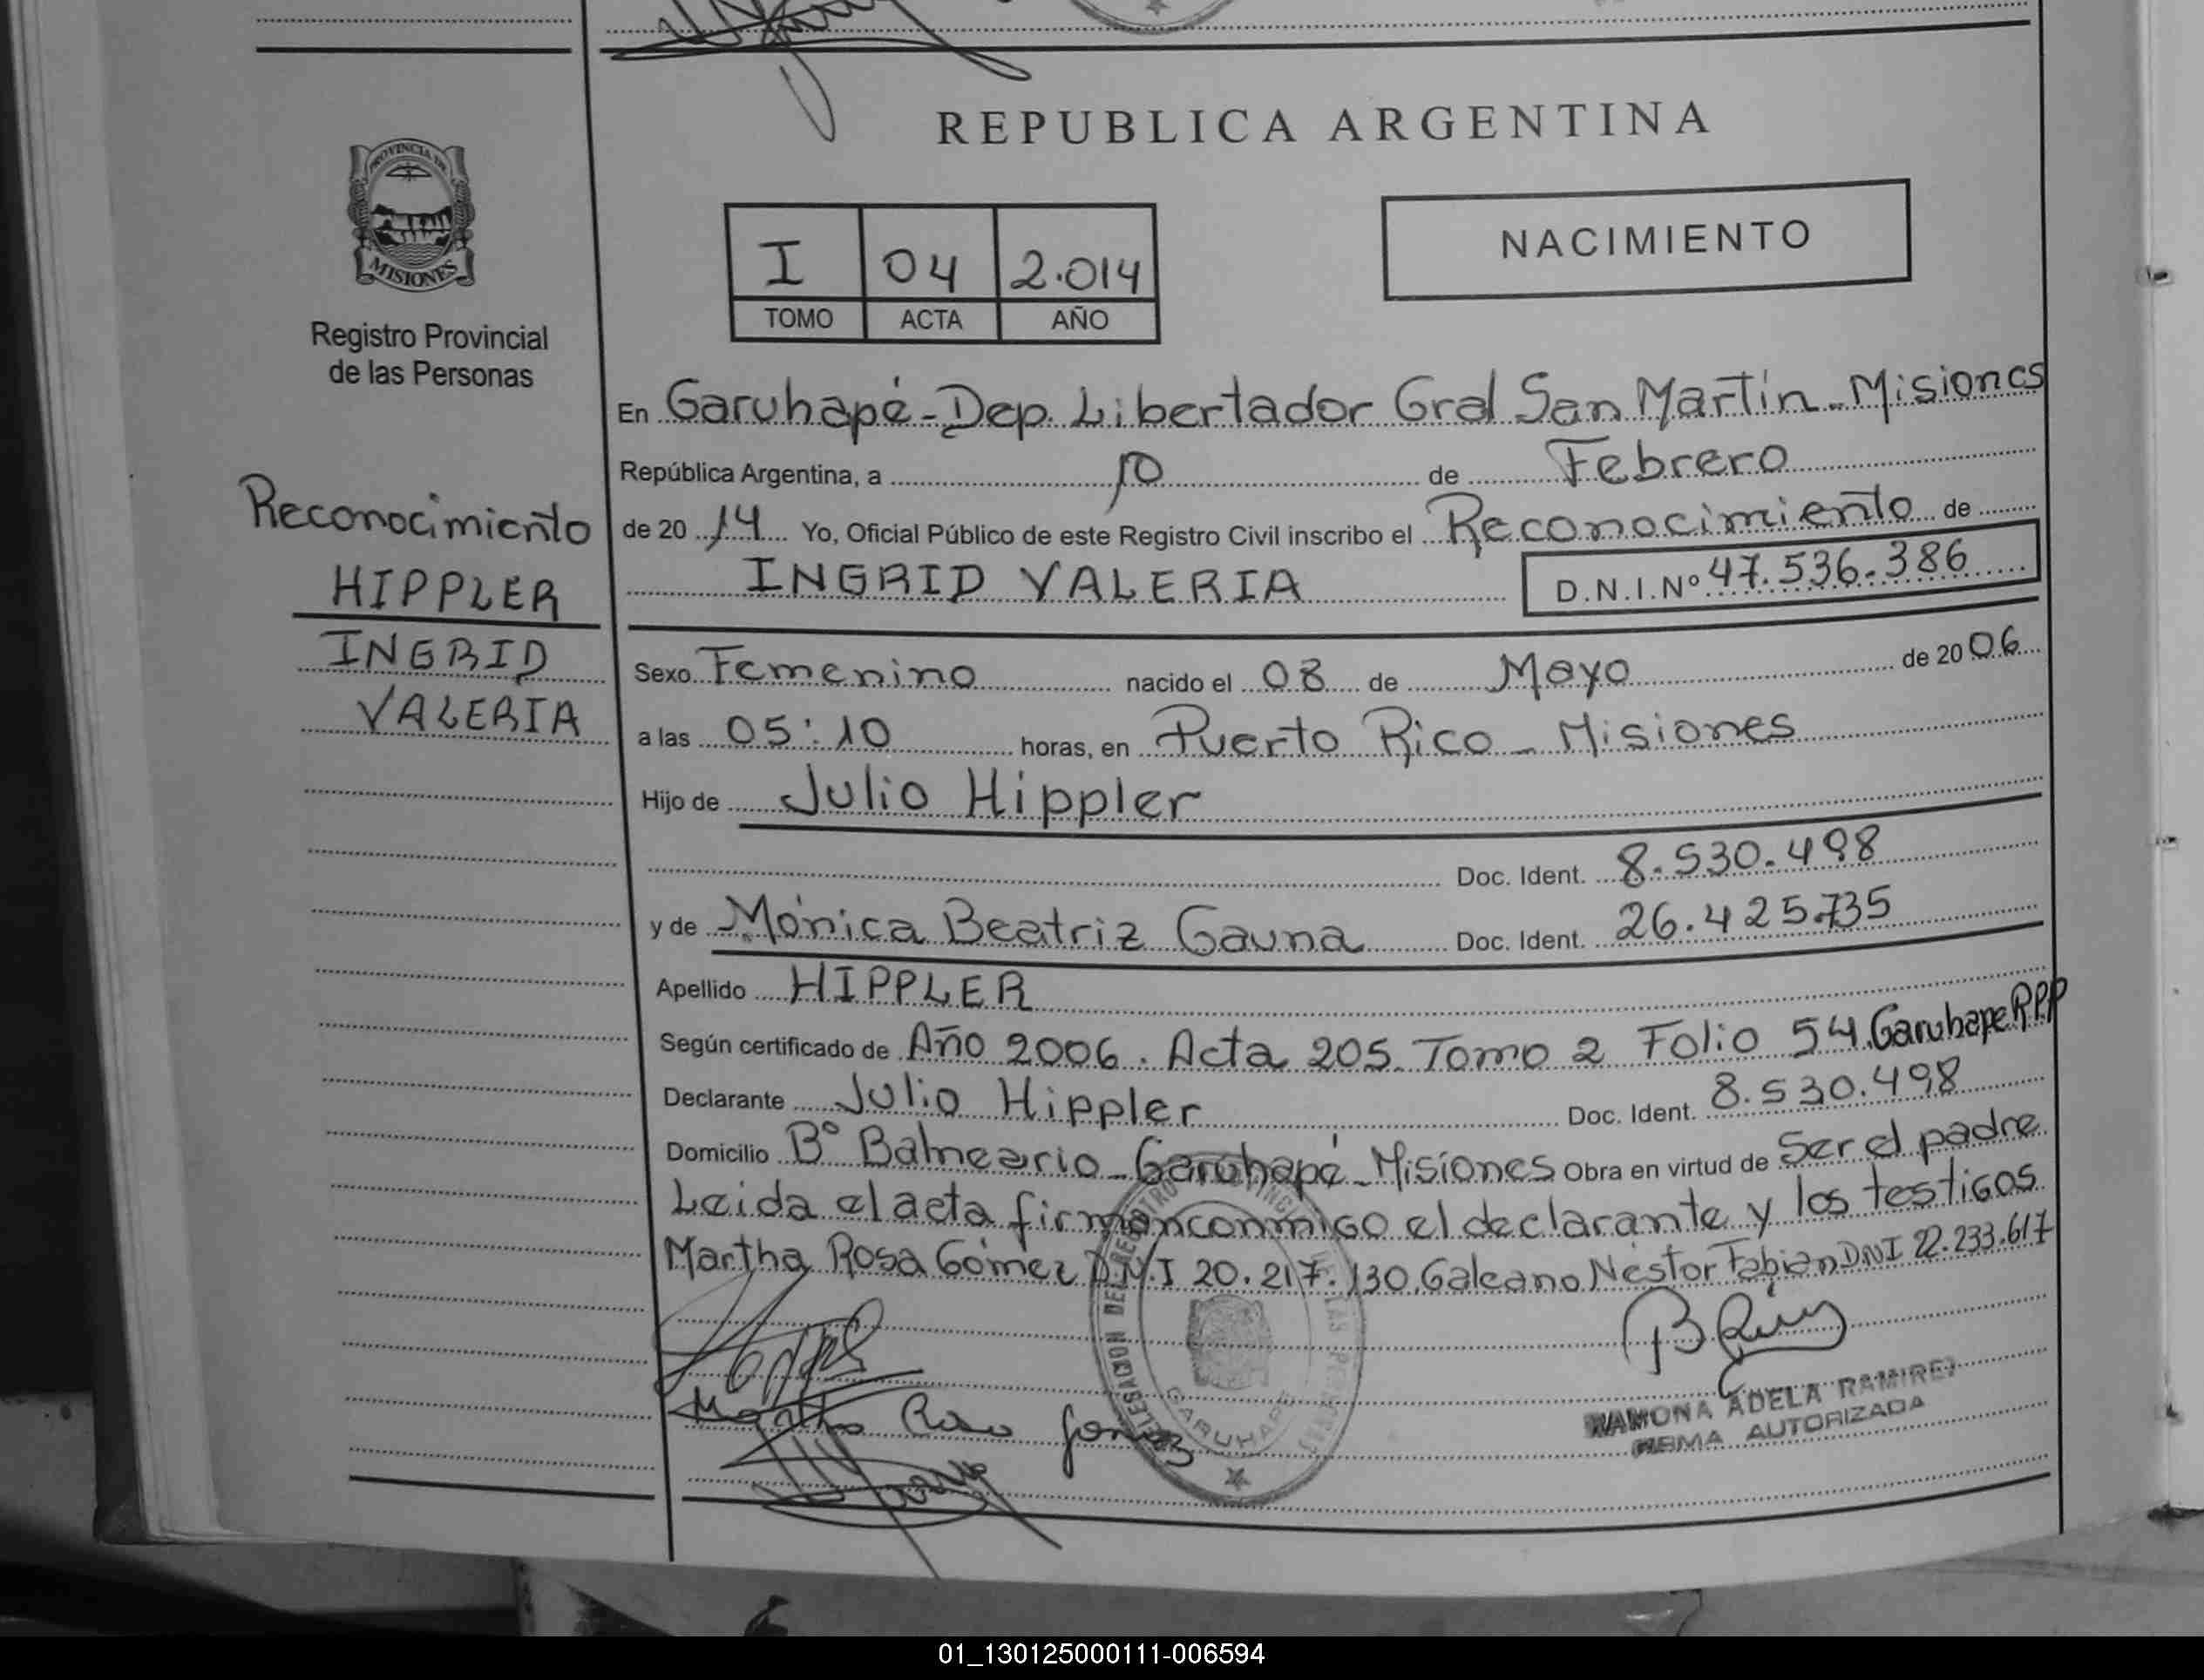 REPUBLICA ARGENTINA
PROVINCIA DE
MISIONES
Registro Provincial
de las Personas
I 04 2.014
TOMO ACTA AÑO
NACIMIENTO
Reconocimiento
HIPPLER
INGRID
VALERIA
En Garuhapé - Dep. Libertador Gral San Martín - Misiones
República Argentina, a 10 de Febrero
de 20 14 Yo, Oficial Público de este Registro Civil inscribo el Reconocimiento de
INGRID VALERIA D.N.I.Nº 47.536.386
Sexo Femenino nacido el 08 de Mayo de 20 06
a las 05:10 horas, en Puerto Rico - Misiones
Hijo de Julio Hippler
Doc. Ident. 8.530.498
y de Mónica Beatriz Gauna Doc. Ident. 26.425.735
Apellido HIPPLER
Según certificado de Año 2006. Acta 205. Tomo 2 Folio 54 Garuhape R.P.P
Declarante Julio Hippler Doc. Ident. 8.530.498
Domicilio Bº Balneario - Garuhapé - Misiones Obra en virtud de Ser el padre
Leida el acta firman conmigo el declarante y los testigos
Martha Rosa Gómez D.N.I 20.217.130. Galeano Néstor Fabian DNI 22.233.617
Martha Rosa Gomez
DELEGACION DEL REGISTRO PROVINCIAL DE LAS PERSONAS
GARUHAPE
RAMONA ADELA RAMIREZ
FIRMA AUTORIZADA
01_130125000111-006594